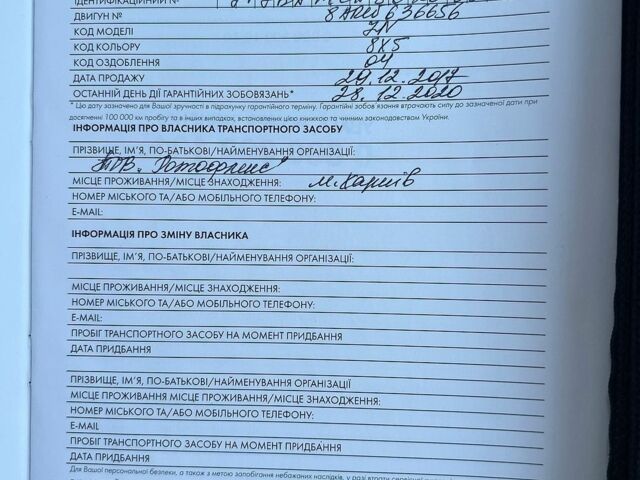 ІДЕНТИФІКАЦІЙНИЙ №
ДВИГУН № 8AR20636656
КОД МОДЕЛІ ZN
КОД КОЛЬОРУ 8X5
КОД ОЗДОБЛЕННЯ 04
ДАТА ПРОДАЖУ 29.12.2017
ОСТАННІЙ ДЕНЬ ДІЇ ГАРАНТІЙНИХ ЗОБОВ'ЯЗАНЬ* 28.12.2020
* Цю дату зазначено для Вашої зручності в підрахунку гарантійного терміну. Гарантійні зобов'язання втрачають силу до зазначеної дати при
досягненні 100 000 км пробігу та в інших випадках, встановлених цією книжкою та чинним законодавством України.
ІНФОРМАЦІЯ ПРО ВЛАСНИКА ТРАНСПОРТНОГО ЗАСОБУ
ПРІЗВИЩЕ, ІМ'Я, ПО-БАТЬКОВІ/НАЙМЕНУВАННЯ ОРГАНІЗАЦІЇ:
ТОВ
МІСЦЕ ПРОЖИВАННЯ/МІСЦЕ ЗНАХОДЖЕННЯ: м. Харків
НОМЕР МІСЬКОГО ТА/АБО МОБІЛЬНОГО ТЕЛЕФОНУ:
E-MAIL:
ІНФОРМАЦІЯ ПРО ЗМІНУ ВЛАСНИКА
ПРІЗВИЩЕ, ІМ'Я, ПО-БАТЬКОВІ/НАЙМЕНУВАННЯ ОРГАНІЗАЦІЇ:
МІСЦЕ ПРОЖИВАННЯ/МІСЦЕ ЗНАХОДЖЕННЯ:
НОМЕР МІСЬКОГО ТА/АБО МОБІЛЬНОГО ТЕЛЕФОНУ:
E-MAIL:
ПРОБІГ ТРАНСПОРТНОГО ЗАСОБУ НА МОМЕНТ ПРИДБАННЯ
ДАТА ПРИДБАННЯ
ПРІЗВИЩЕ, ІМ'Я, ПО-БАТЬКОВІ/НАЙМЕНУВАННЯ ОРГАНІЗАЦІЇ
МІСЦЕ ПРОЖИВАННЯ МІСЦЕ ПРОЖИВАННЯ/МІСЦЕ ЗНАХОДЖЕННЯ:
НОМЕР МІСЬКОГО ТА/АБО МОБІЛЬНОГО ТЕЛЕФОНУ:
E-MAIL
ПРОБІГ ТРАНСПОРТНОГО ЗАСОБУ НА МОМЕНТ ПРИДБАННЯ
ДАТА ПРИДБАННЯ
Для Вашої персональної безпеки, а також з метою запобігання небажаних наслідків, у разі втрати сервісної